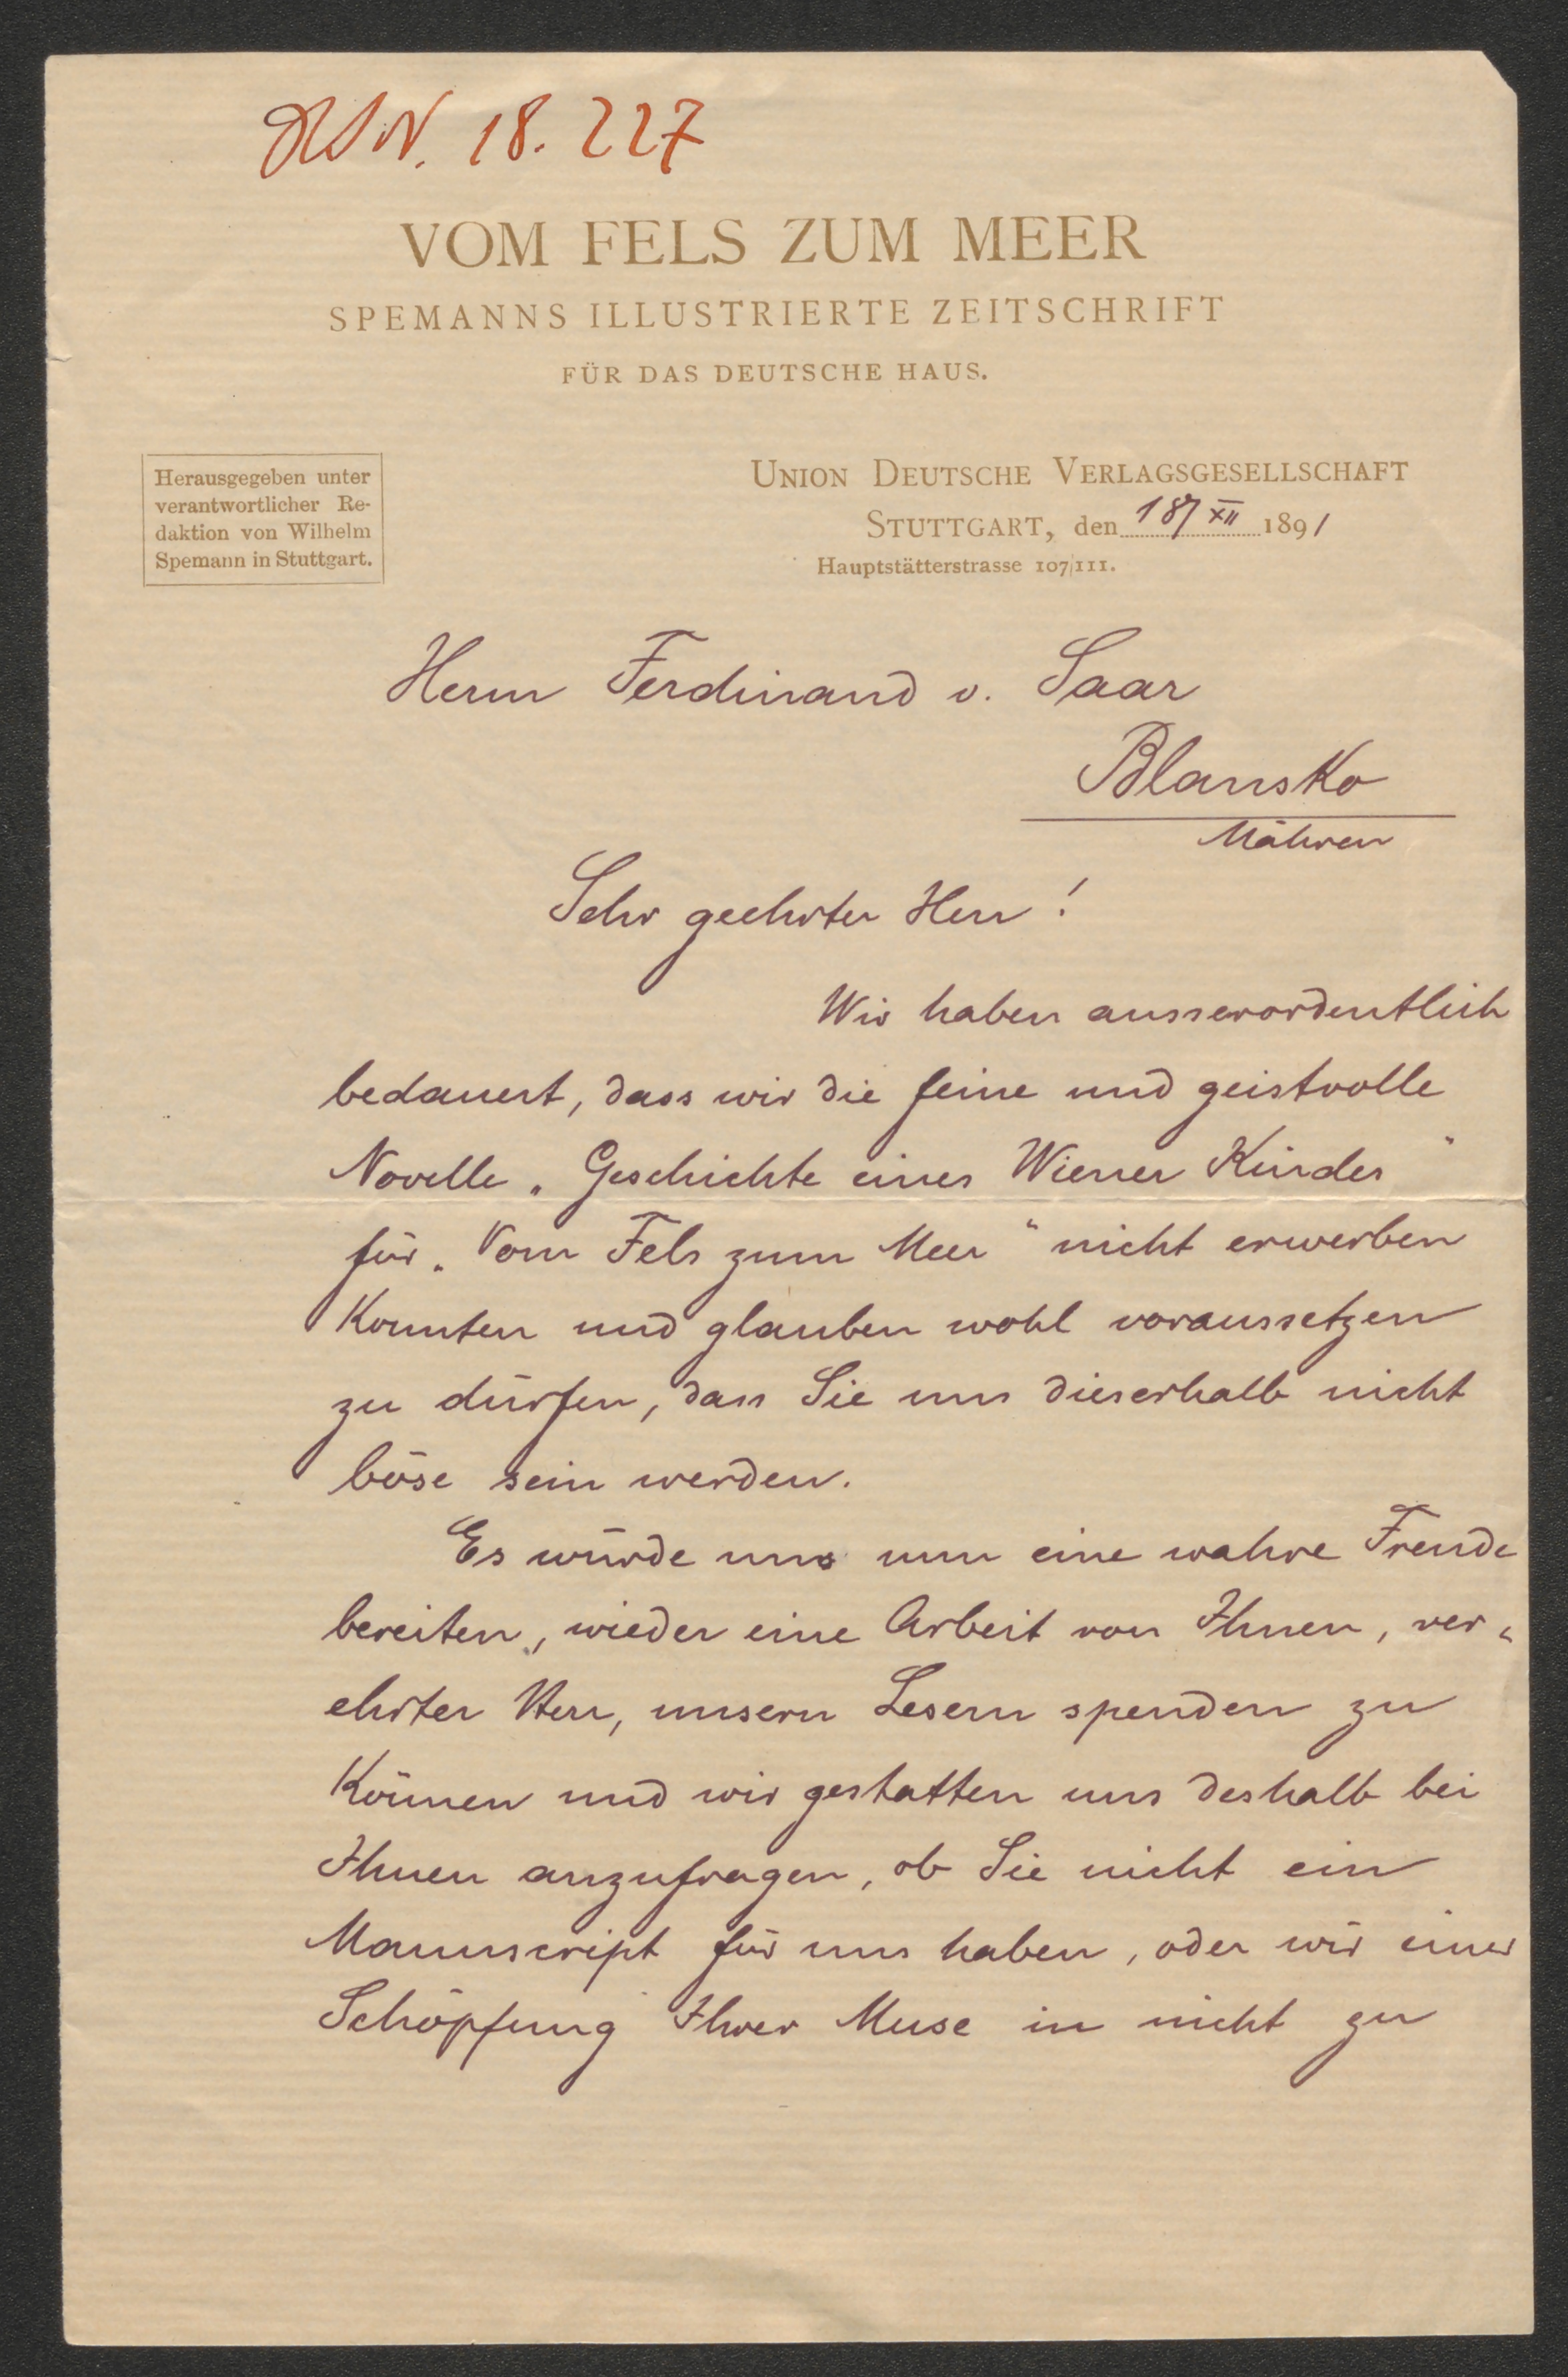 18. 227
VOM FELS ZUM MEER
SPEMANNS ILLUSTRIERTE ZEITSCHRIFT
FÜR DAS DEUTSCHE HAUS.
Herausgegeben unter
verantwortlicher Re-
daktion von Wilhelm
Spemann in Stuttgart.
UNION DEUTSCHE VERLAGSGESELLSCHAFT
STUTTGART, den 18/XII 1891
Hauptstätterstrasse 107/III.
Herrn Ferdinand v. Saar
Blansko
Mähren
Sehr geehrter Herr!
Wir haben ausserordentlich
bedauert, dass wir die feine und geistvolle
Novelle „Geschichte eines Wiener Kindes"
für „Vom Fels zum Meer" nicht erwerben
konnten und glauben wohl voraussetzen
zu dürfen, dass Sie uns dieserhalb nicht
böse sein werden.
Es würde uns nun eine wahre Freude
bereiten, wieder eine Arbeit von Ihnen, ver-
ehrter Herr, unsern Lesern spenden zu
können und wir gestatten uns deshalb bei
Ihnen anzufragen, ob Sie nicht ein
Manuscript für uns haben, oder wir einer
Schöpfung Ihrer Muse in nicht zu